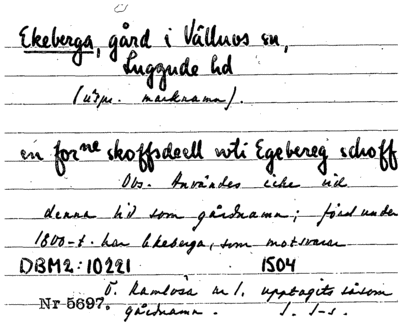 Ekeberga, gård i Vålluvs sn,
Luggude hd
(urspr. marknamn).
en forne skoffsdeell wti Egebereg schoff
Obs. Användes icke vid
denna tid som gårdnamn; först under
1800-t. har Ekeberga, som motsvarar
DBM2:10221 1504
Ö. Ramlösa nr 1, upptagits såsom
Nr 5697. gårdnamn.